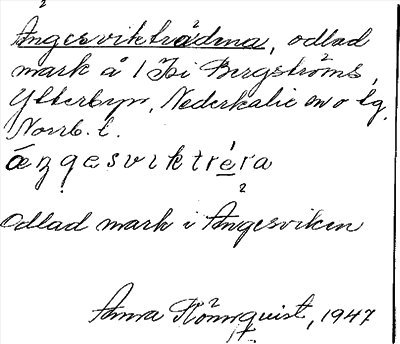 Ångesvikträdma, odlad
mark å 1 Isi Bergströms,
Ytterbyn, Nederkalix sn o tg,
Norrb. l.
ångesviktréra
Odlad mark i Ångesviken
Anna Rönnquist, 1947